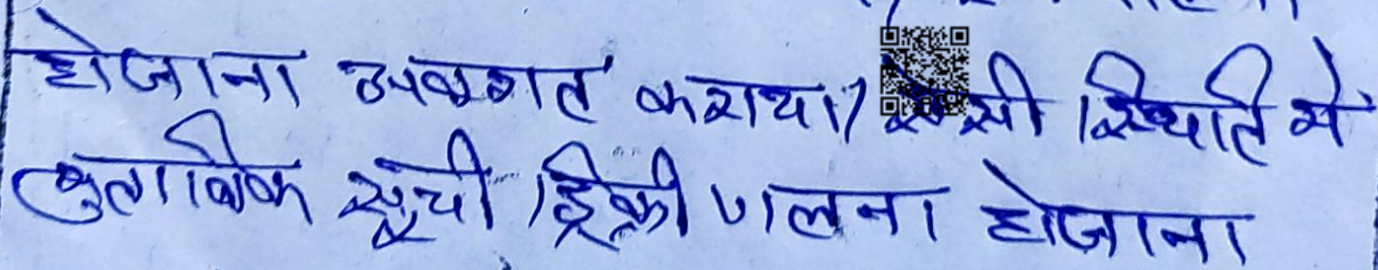 होजाना अवगत कराया। ऐसी स्थिति मे
मुताबिक सूची डिक्री पालना होजाना